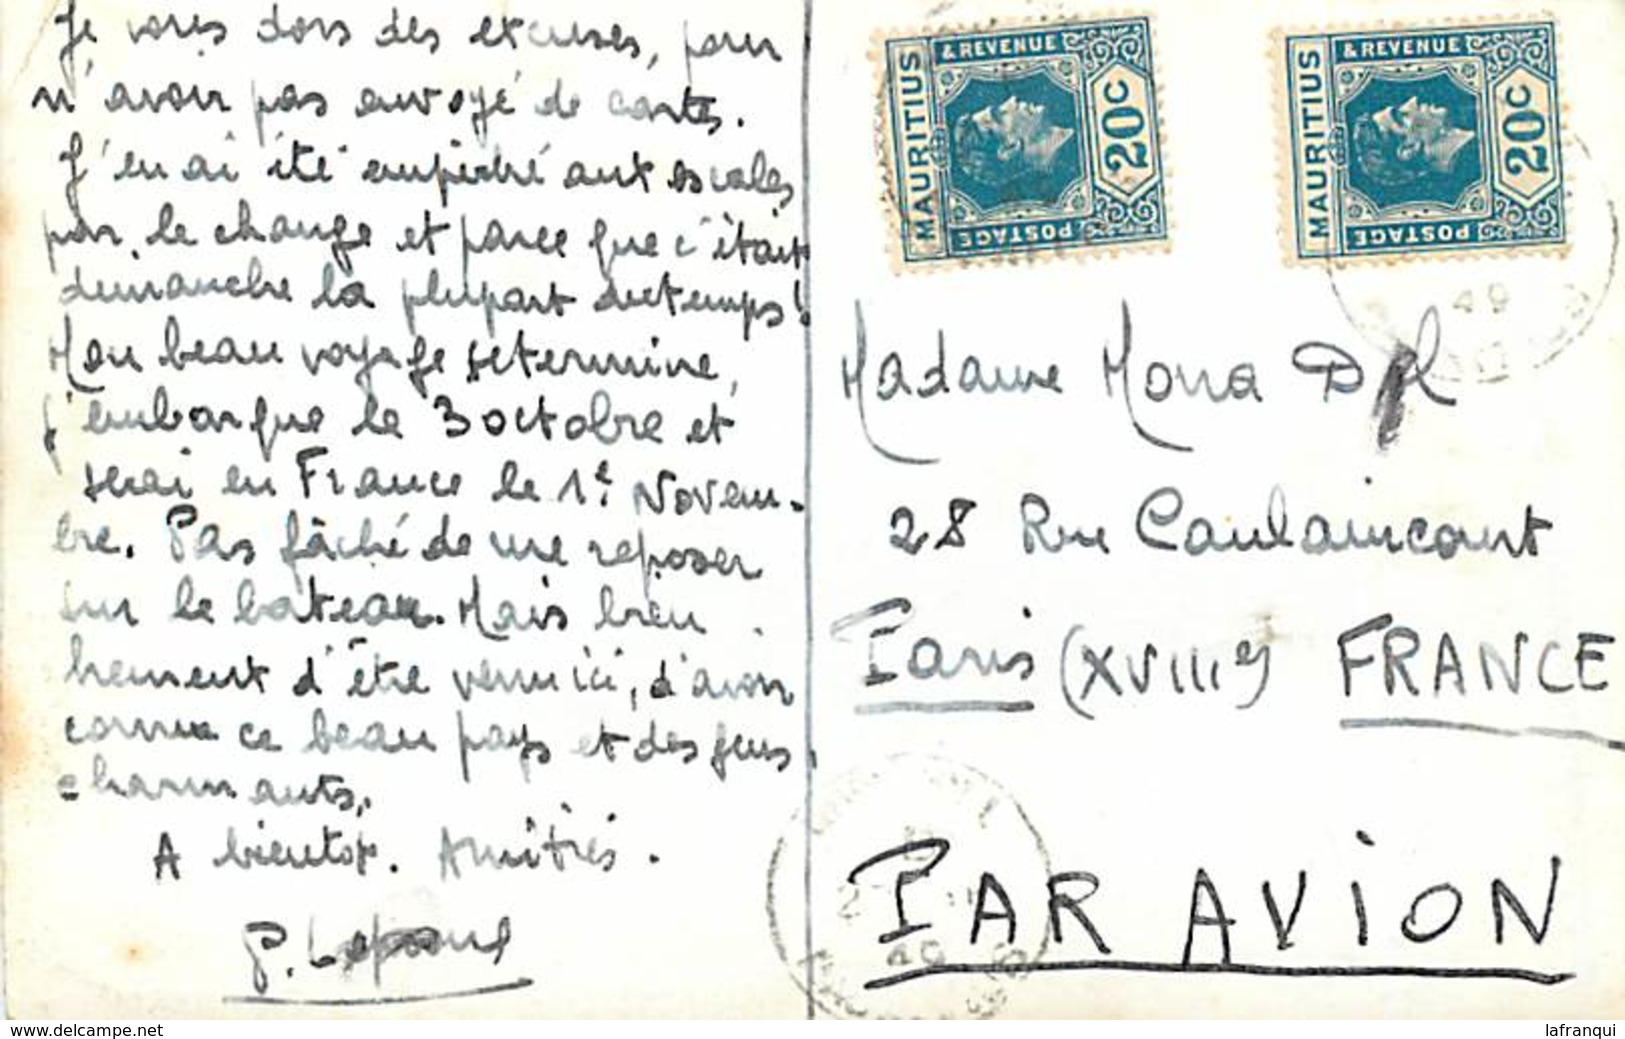 Je vous dois des excuses, pour
n'avoir pas envoyé de cartes.
J'en ai été empêché aux escales
par le change et parce que c'était
dimanche la plupart du temps!
Mon beau voyage se termine,
j'embarque le 3 octobre et
serai en France le 1er Novem-
bre. Pas fâché de me reposer
sur le bateau. Mais bien
heureusement d'être venu ici, d'avoir
connu ce beau pays et des gens
charmants.
A bientôt. Amitiés.
MAURITIUS
& REVENUE
POSTAGE
20C
MAURITIUS
& REVENUE
POSTAGE
20C
49
Madame Mona
28 Rue Caulaincourt
Paris (XVIIIe) FRANCE
PAR AVION
49
www.delcampe.net
lafranqui